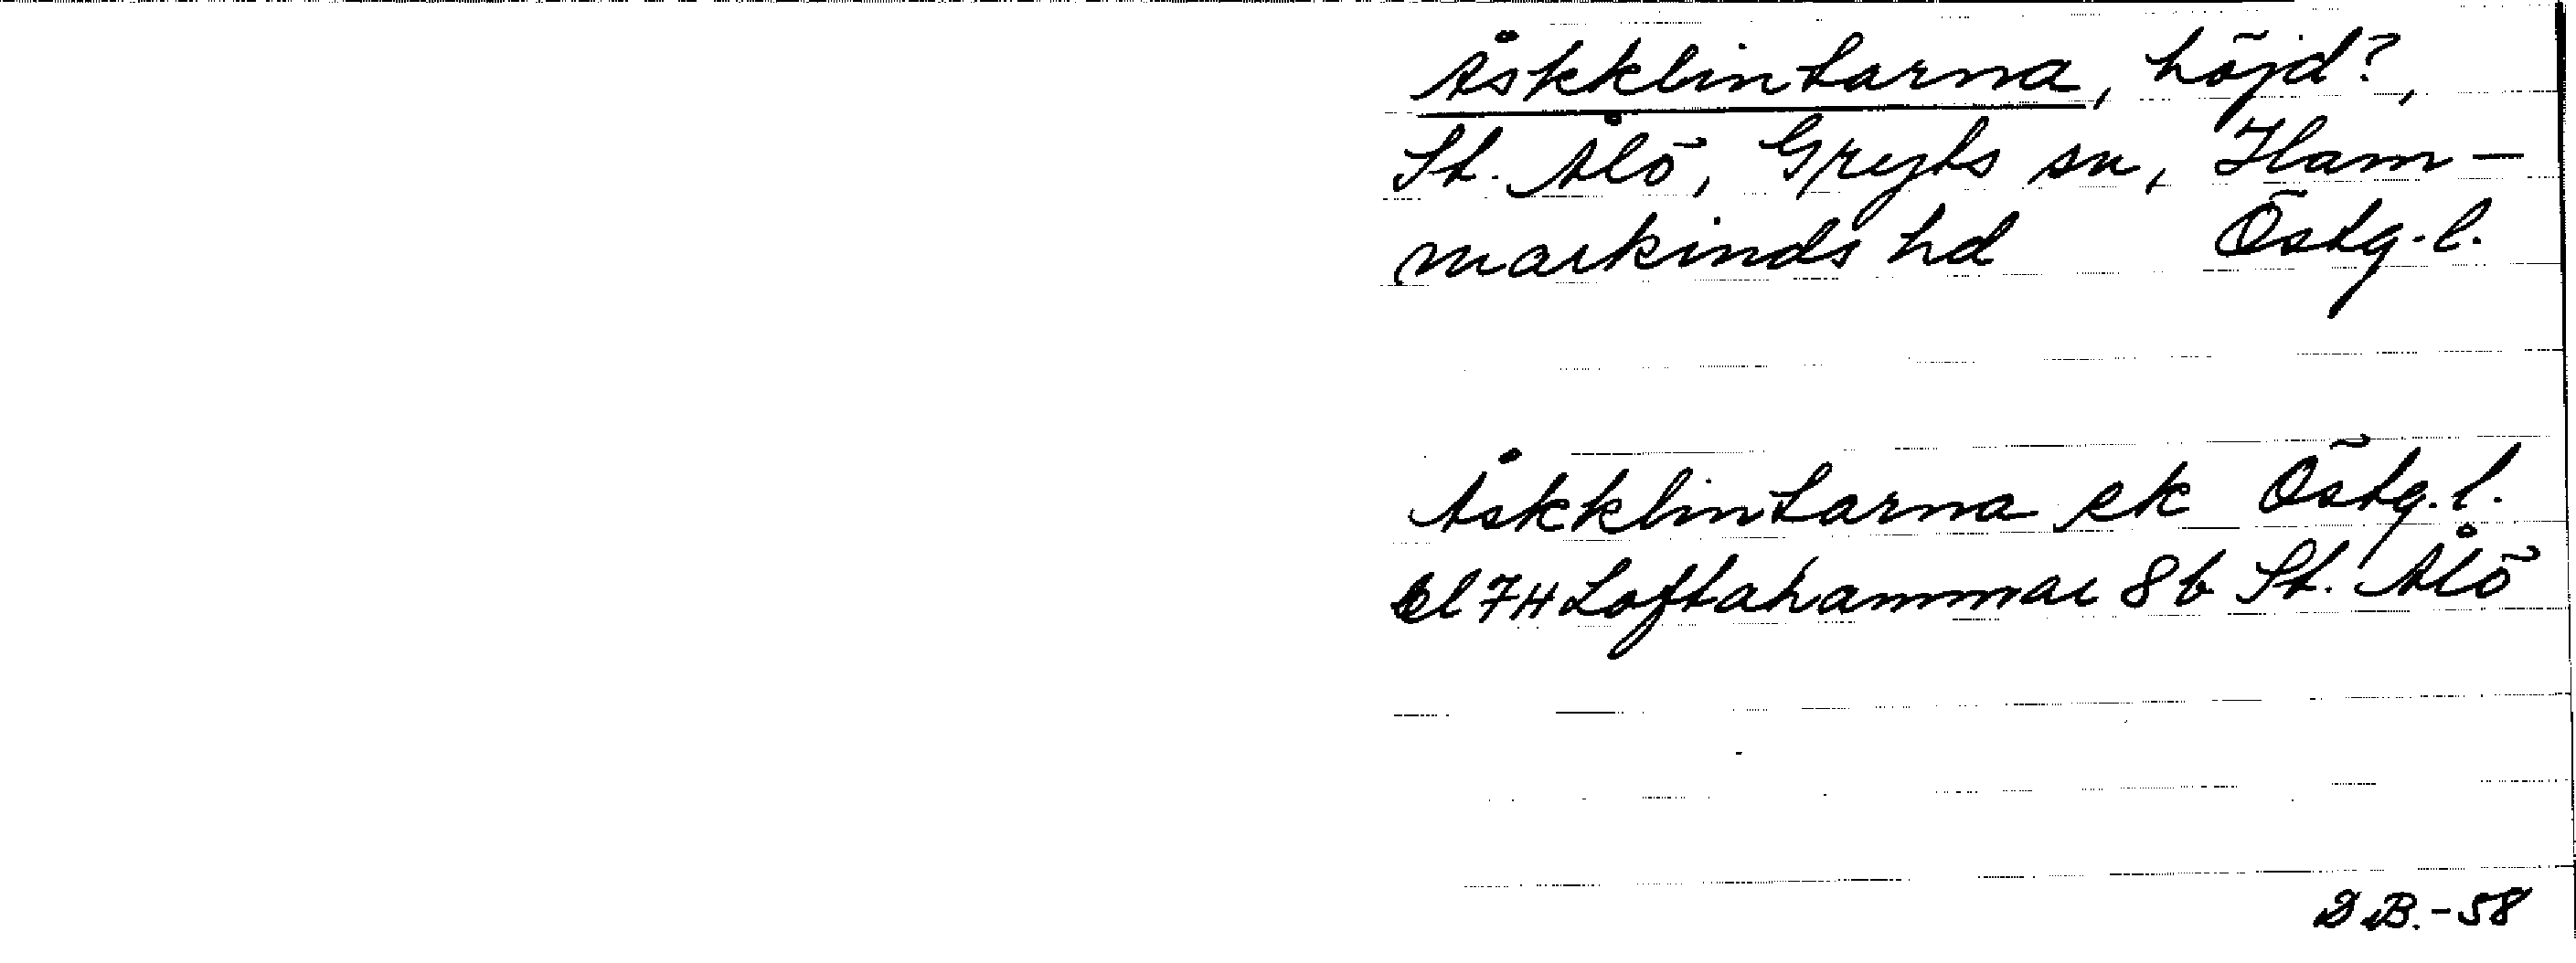 Åskklintarna, höjd?,
St. Ålö, Gryts sn, Ham-
markinds hd Östg.l.
Åskklintarna ek Östg.l.
bl 7H Loftahammar 8b St. Ålö
D B.-58